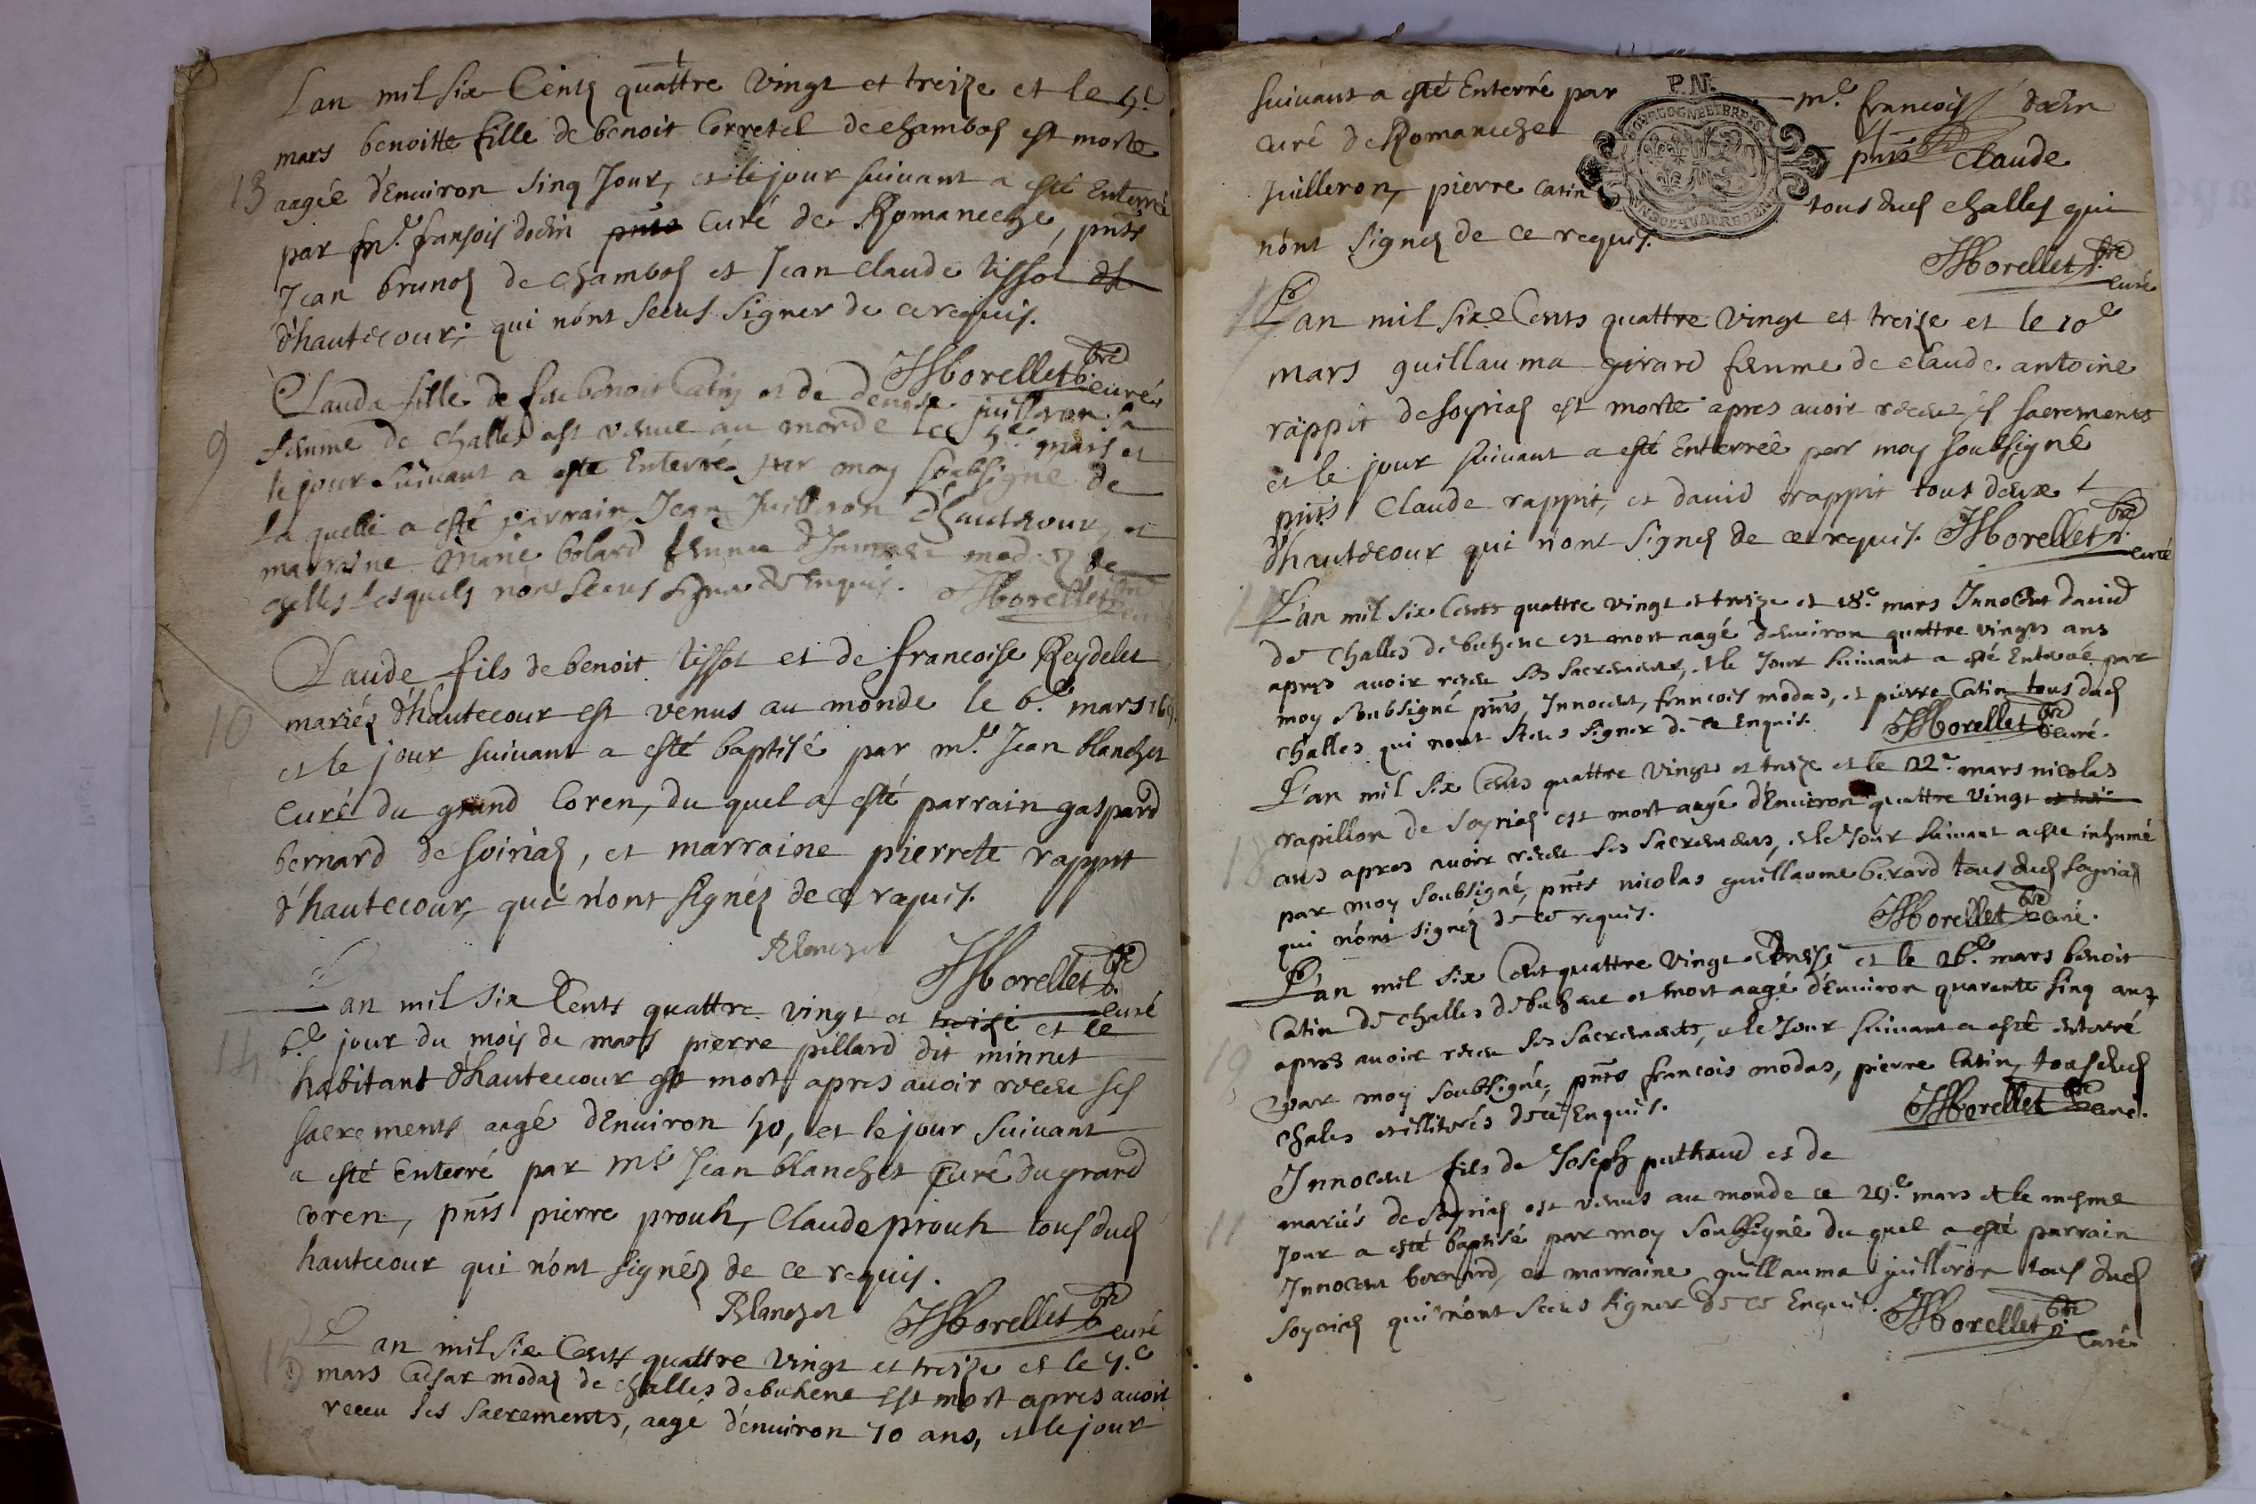 Lan mil six Cents quattre vingt et treize et le 5e
mars benoitte fille de benoit Corretel de chambos est morte
13 aagée d'Enuiron sinq Jour, et le jour suiuant a esté Enterré
par mre. françois dodin Curé de Romaneche, pnts
Jean brunos de chambos et Jean Claude tissot
d'hautecour, qui nónt sceus signer de ce requis.
JMorellet pbre curé
Clauda fille de feu benoit Catin et de denise juilleron sa
femme de Challes est venue au monde le 5e mars et
9 le jour suiuant a esté Enterré par moy soubsigné de
la quelle a esté parrain Jean Juilleron d'hautecour, et
marraine Marie bolard femme
Challes lesquels nónt sceus signer de Enquis. JMorellet pbre
Claude fils de benoit tissot et de francoise Reydelet
10 mariés d'hautecour est venus au monde le 6e mars 169
et le jour suiuant a esté baptisé par mre. Jean blanchet
Curé du grand Coren, du quel a esté parrain gaspard
bernard de soirias, et marraine pierrete rappit
d'hautecour, qui nónt signés de ce requis.
Blanchet JMorellet pbre curé
Lan mil six Cents quattre vingt et treize et le
14 6e jour du mois de mars pierre pillard dit minnet
habitant d'hautecour est mort apres auoir receu ses
sacrements aagé d'Enuiron 50, et le jour suiuant
a esté Enterré par mre Jean blanchet Curé du grand
Coren, pnts pierre prouh, Claude prouh tous dud
hautecour qui nónt signés de ce requis.
Blanchet JMorellet pbre curé
Lan mil six Cents quattre vingt et treize et le 7e
15 mars Caesar modas de challes de buhene est mort apres auoir
receu ses sacrements, aagé d'enuiron 70 ans, et le jour
suiuant a esté Enterré par mre francois dodin
P.N.
curé de Romaneche pnts Claude
Juilleron, pierre Catin tous dud challes qui
nónt signés de ce requis.
JMorellet pbre curé
Lan mil sixe Cents quattre vingt et treize et le 10e
mars guillauma girard femme de claude antoine
rappit de soyrias est morte apres auoir receu ses sacrements
et le jour suiuant a esté Enterrée par moy soubsigné
pnts Claude rappit, et dauid rappit tous deux
d'hautecour qui nont signés de ce requis. JMorellet pbre curé
L'an mil six Cents quattre vingt et treize et 18e mars Innocent dauid
de Challes de buhene est mort aagé d'enuiron quattre vingts ans
apres auoir receu ses sacrements, et le Jour suiuant a esté Enterré par
moy soubsigné pnts, Innocent, francois modas, et pierre Catin tous dud
challes qui nont sceus signer de ce Enquis. JMorellet pbre curé.
L'an mil six Cents quattre vingts et treize et le 22e mars nicolas
rapillon de soyrias est mort aagé d'Enuiron quattre vingt
18 ans apres auoir receu ses sacrements, et le Jour suiuant a esté inhumé
par moy soubsigné, pnts nicolas guillaume birard tous dud soyrias
qui nónt signés de ce requis. JMorellet pbre curé.
L'an mil six Cent quattre vingt et treize et le 26e mars benoit
Catin de challes de buhene est mort aagé d'Enuiron quarente sinq ans
19 apres auoir receu ses sacrements, et le Jour suiuant a esté enterré
par moy soubsigné, pnts francois modas, pierre Catin, tous dud
chales et illiterés de ce Enquis. JMorellet pbre curé.
Innocent fils de Joseph puthaud et de
mariés de soyrias est venus au monde ce 29e mars et le mesme
11 Jour a esté baptisé par moy soubsigné du quel a esté parrain
Innocent bernard, et marraine guillauma juilleron tous dud
soyrias qui nónt sceus signer de ce Enquis. JMorellet pbre
Curé